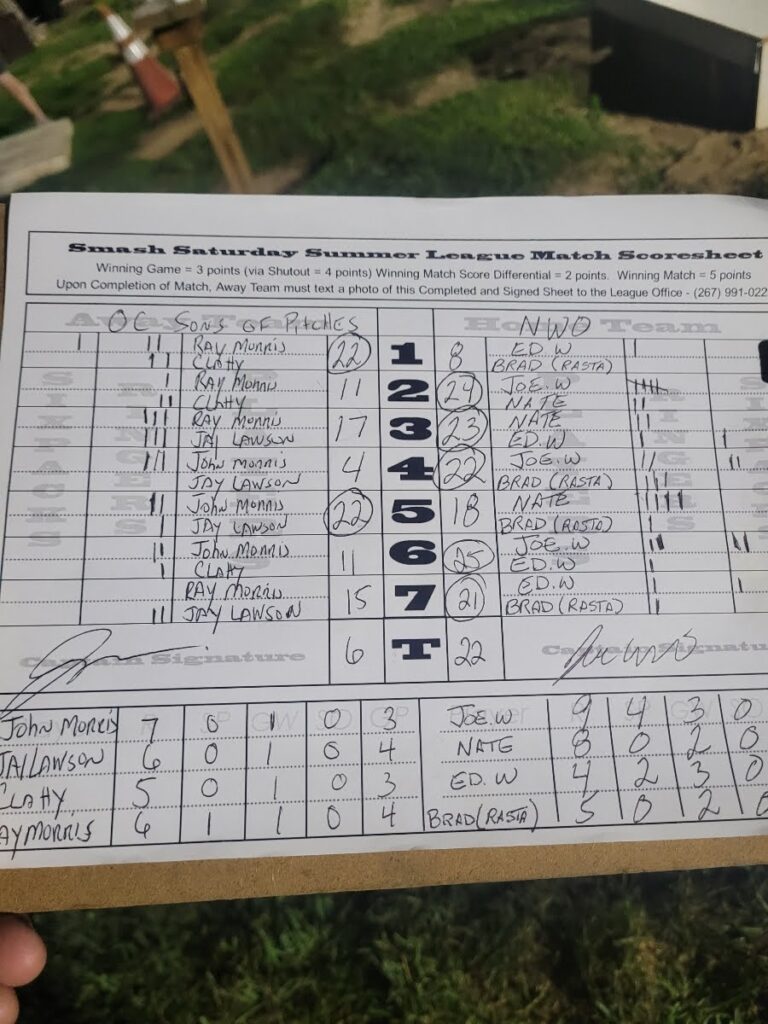 Smash Saturday Summer League Match Scoresheet
Winning Game = 3 points (via Shutout = 4 points) Winning Match Score Differential = 2 points. Winning Match = 5 points
Upon Completion of Match, Away Team must text a photo of this Completed and Signed Sheet to the League Office - (267) 991-022
Away Team OC SONS OF PITCHES Home Team NWO
RAY MORRIS 22 1 8 ED W
CLATTY BRAD (RASTA)
RAY MORRIS 11 2 24 JOE. W
CLATTY NATE
RAY MORRIS 17 3 23 NATE
JAY LAWSON ED. W
JOHN MORRIS 4 4 22 JOE. W
JAY LAWSON BRAD (RASTA)
JOHN MORRIS 22 5 18 NATE
JAY LAWSON BRAD (RASTA)
JOHN MORRIS 11 6 25 JOE. W
CLATTY ED. W
RAY MORRIS 15 7 21 ED. W
JAY LAWSON BRAD (RASTA)
Captain Signature 6 T 22 Captain Signatu
JOHN MORRIS 7 0 1 0 3 JOE. W 9 4 3 0
JAY LAWSON 6 0 1 0 4 NATE 8 0 2 0
CLATTY 5 0 1 0 3 ED. W 4 2 3 0
AY MORRIS 6 1 1 0 4 BRAD (RASTA) 5 0 2 0